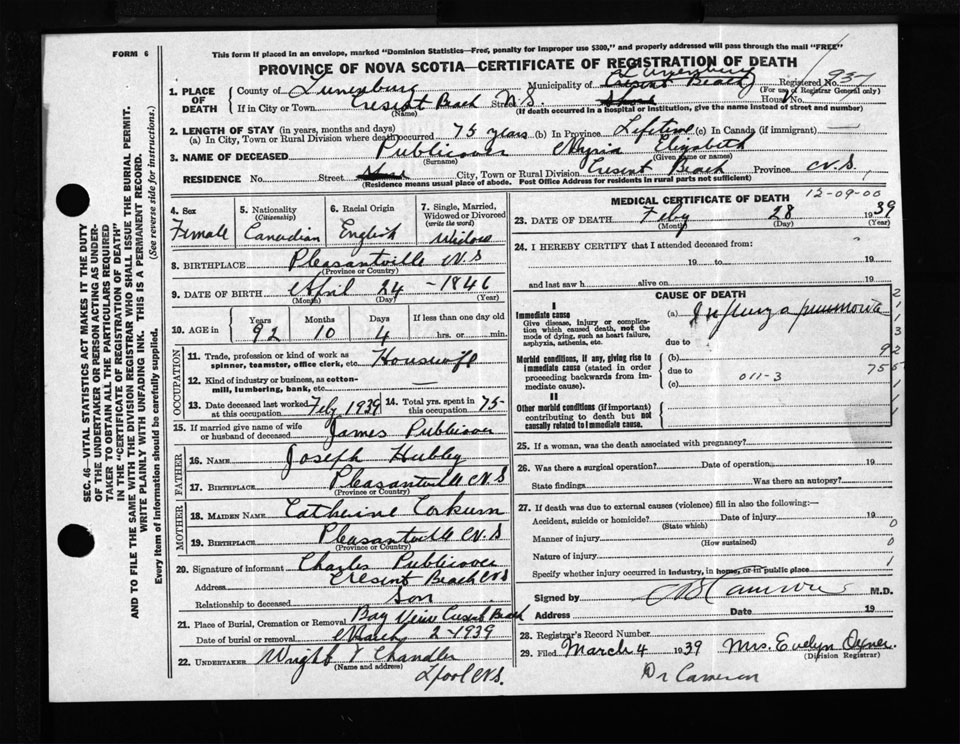 FORM 6
This form if placed in an envelope, marked "Dominion Statistics—Free, penalty for improper use $300," and properly addressed will pass through the mail "FREE"
PROVINCE OF NOVA SCOTIA—CERTIFICATE OF REGISTRATION OF DEATH
Registered No. 937
(For use of Registrar General only)
1. PLACE OF DEATH
County of Lunenburg Municipality of Lunenburg Cresent Beach
If in City or Town Cresent Beach Street N.S. House No.
(Name) (If death occurred in a hospital or institution, give the name instead of street and number)
2. LENGTH OF STAY (in years, months and days)
(a) In City, Town or Rural Division where death occurred 75 years (b) In Province Lifetime (c) In Canada (if immigrant) —
3. NAME OF DECEASED Publicover Elizabeth
(Surname) (Given name or names)
RESIDENCE No. Street City, Town or Rural Division Cresent Beach Province N.S.
(Residence means usual place of abode. Post Office Address for Residents in rural parts not sufficient)
4. Sex Female
5. Nationality (Citizenship) Canadian
6. Racial Origin English
7. Single, Married, Widowed or Divorced (write the word) Widow
8. BIRTHPLACE Pleasantville N.S
(Province or Country)
9. DATE OF BIRTH April 24 - 1846
(Month) (Day) (Year)
10. AGE in Years 92 Months 10 Days 4 If less than one day old hrs. or min.
OCCUPATION
11. Trade, profession or kind of work as spinner, teamster, office clerk, etc. Housewife
12. Kind of industry or business, as cotton-mill, lumbering, bank, etc. —
13. Date deceased last worked at this occupation Feb, 1939 14. Total yrs. spent in this occupation 75-
15. If married give name of wife or husband of deceased James Publicover
FATHER
16. Name Joseph Hubley
17. Birthplace Pleasantville N.S
(Province or Country)
MOTHER
18. Maiden Name Catherine Corkum
19. Birthplace Pleasantville N.S
(Province or Country)
20. Signature of informant Charles Publicover
Address Cresent Beach N.S
Relationship to deceased Son
21. Place of Burial, Cremation or Removal Bay View Cresent Beach
Date of burial or removal March 2 - 1939
22. UNDERTAKER Wright & Chandler
(Name and address)
L'pool N.S.
MEDICAL CERTIFICATE OF DEATH
12-09-00
23. DATE OF DEATH Feby 28 1939
(Month) (Day) (Year)
24. I HEREBY CERTIFY that I attended deceased from:
19 to 19
and last saw h alive on 19
CAUSE OF DEATH
I
Immediate cause
Give disease, injury or complication which caused death, not the mode of dying, such as heart failure, asphyxia, asthenia, etc.
(a) Influenza pneumonia
due to
Morbid conditions, if any, giving rise to immediate cause (stated in order proceeding backwards from immediate cause).
(b)
due to
(c) 011-3
II
Other morbid conditions (if important) contributing to death but not causally related to immediate cause.
25. If a woman, was the death associated with pregnancy?
26. Was there a surgical operation? Date of operation 19
State findings Was there an autopsy?
27. If death was due to external causes (violence) fill in also the following:—
Accident, suicide or homicide? Date of injury 19
(State which)
Manner of injury
(How sustained)
Nature of injury
Specify whether injury occurred in industry, in home, or in public place
Signed by Cameron M.D.
Address Date 19
28. Registrar's Record Number
29. Filed March 4 1939 Mrs. Evelyn Oxner
(Division Registrar)
Dr Cameron
SEC. 46—VITAL STATISTICS ACT MAKES IT THE DUTY
OF THE UNDERTAKER OR PERSON ACTING AS UNDER-
TAKER TO OBTAIN ALL THE PARTICULARS REQUIRED
IN THE "CERTIFICATE OF REGISTRATION OF DEATH"
AND TO FILE THE SAME WITH THE DIVISION REGISTRAR WHO SHALL ISSUE THE BURIAL PERMIT.
WRITE PLAINLY WITH UNFADING INK. THIS IS A PERMANENT RECORD.
Every item of information should be carefully supplied. (See reverse side for instructions.)